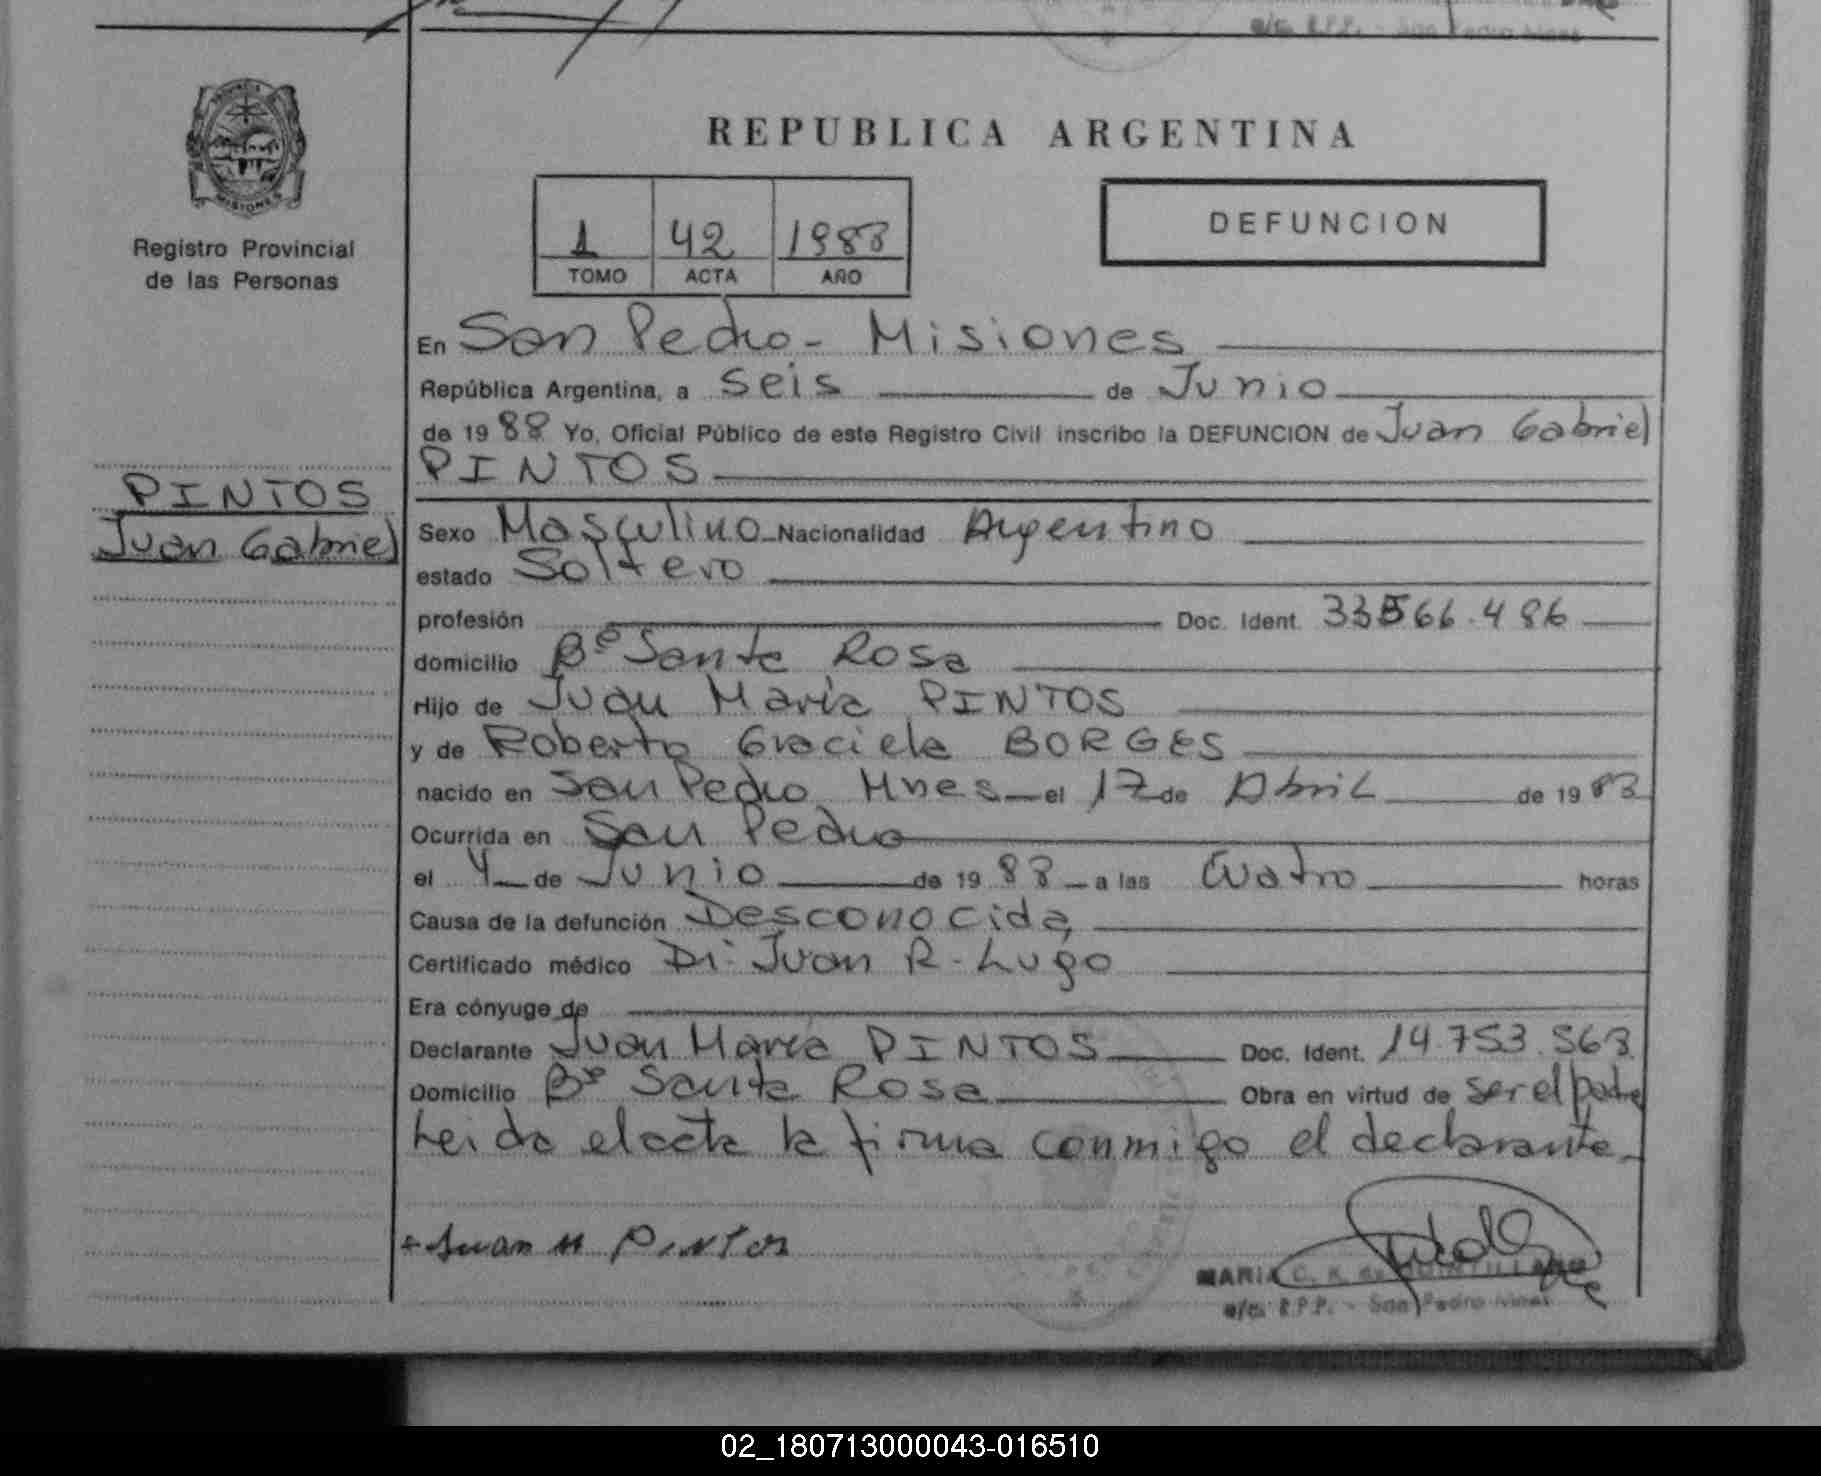 REPUBLICA ARGENTINA
PROVINCIA
MISIONES
Registro Provincial
de las Personas
1 42 1988
TOMO ACTA AÑO
DEFUNCION
En San Pedro - Misiones
República Argentina, a seis de Junio
de 1988 Yo, Oficial Público de este Registro Civil inscribo la DEFUNCION de Juan Gabriel
PINTOS
PINTOS
Juan Gabriel
Sexo Masculino Nacionalidad Argentino
estado Soltero
profesión Doc. Ident. 33566.486
domicilio Bº Santa Rosa
Hijo de Juan María PINTOS
y de Roberta Graciela BORGES
nacido en San Pedro Mnes el 17 de Abril de 1983
Ocurrida en San Pedro
el 4 de Junio de 1988 a las Cuatro horas
Causa de la defunción Desconocida
Certificado médico Dr. Juan R. Lugo
Era cónyuge de
Declarante Juan María PINTOS Doc. Ident. 14.753.563
Domicilio Bº Santa Rosa Obra en virtud de ser el padre
Leida el acta la firma conmigo el declarante
Juan M PINTOS
MARIA C. K. de
a/c. R.P.P. - San Pedro Mnes
02_180713000043-016510